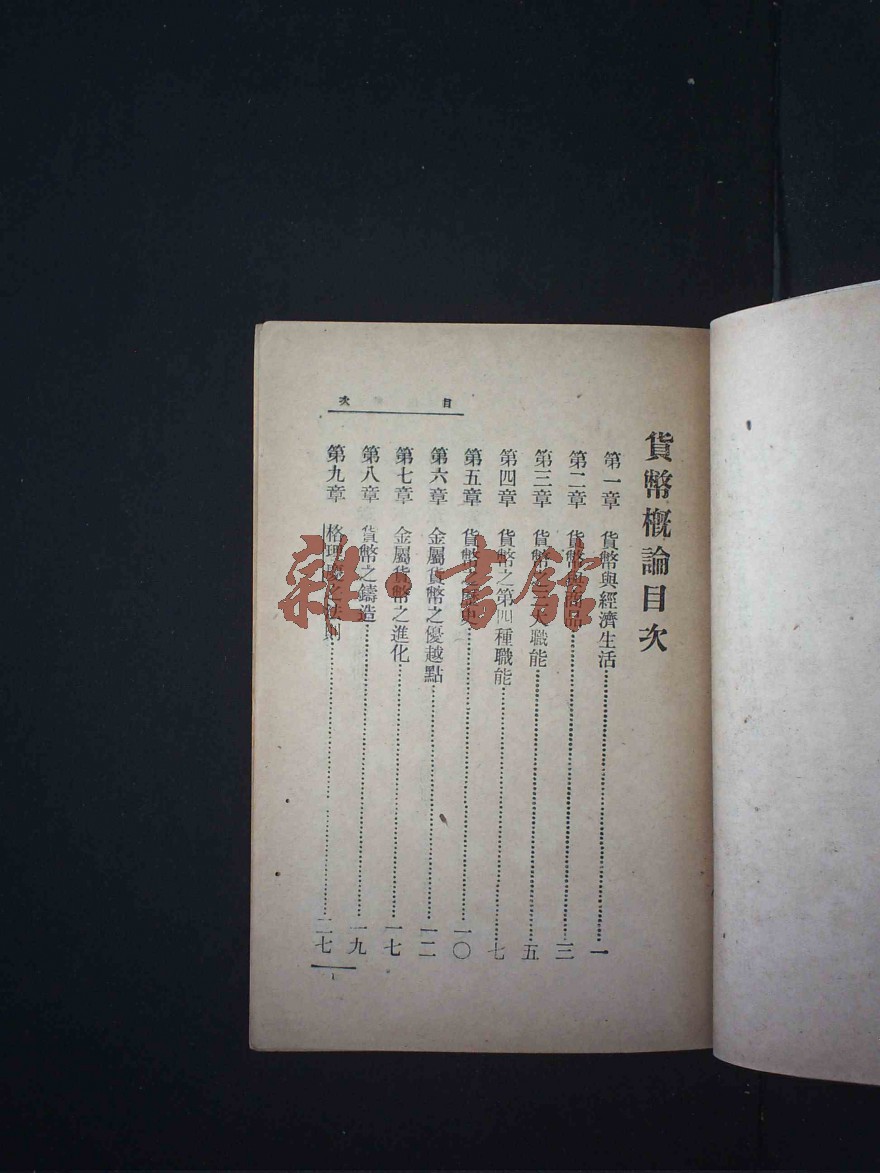 貨幣概論目次
第一章 貨幣與經濟生活 一
第二章 貨幣與商品 三
第三章 貨幣之三大職能 五
第四章 貨幣之第四種職能 七
第五章 貨幣之歷史 一〇
第六章 金屬貨幣之優越點 一二
第七章 金屬貨幣之進化 一七
第八章 貨幣之鑄造 一九
第九章 格理慶之法則 二七
目次
1
雜·書館